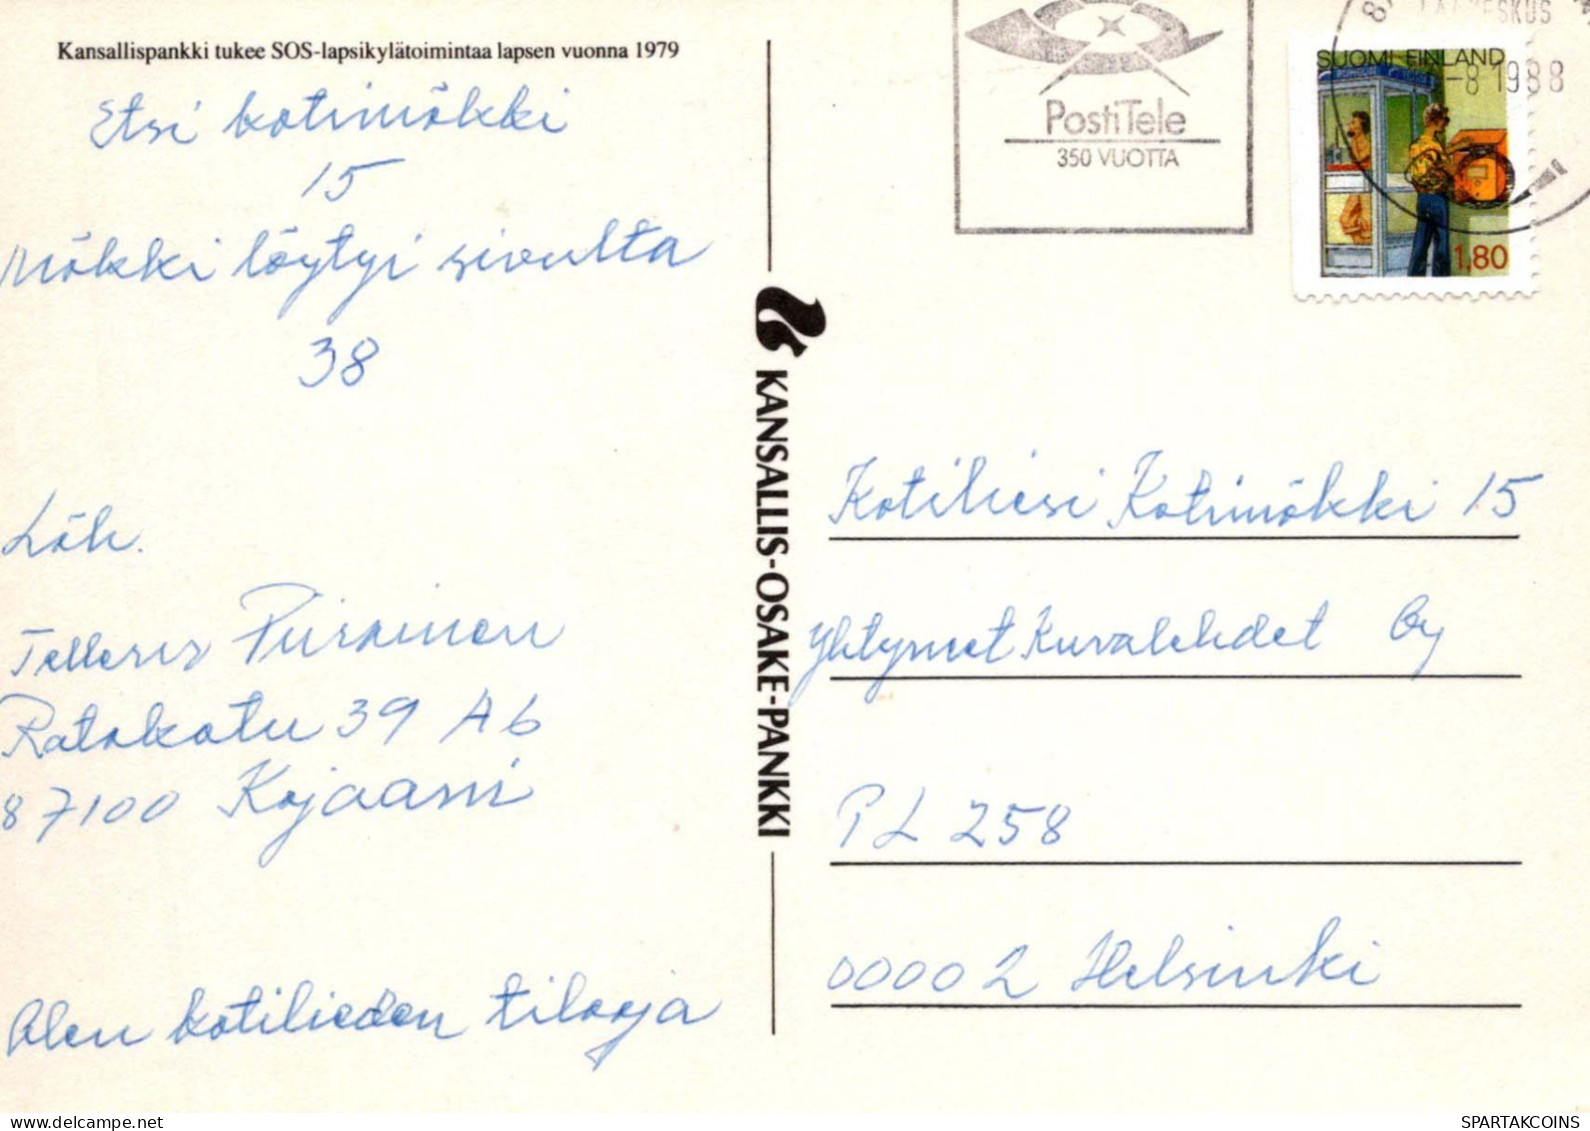 Kansallispankki tukee SOS-lapsikylätoimintaa lapsen vuonna 1979
Etsi kotimökki
15
Mökki löytyi sivulta
38
Läh.
Piirainen
Ratakatu 39 A 6
87100 Kajaani
Olen kotilieden tilaaja
KANSALLIS-OSAKE-PANKKI
PostiTele
350 VUOTTA
SUOMI FINLAND
1,80
-8 1988
Kotiliesi Kotimökki 15
Yhtyneet Kuvalehdet Oy
PL 258
00002 Helsinki
SPARTAKCOINS